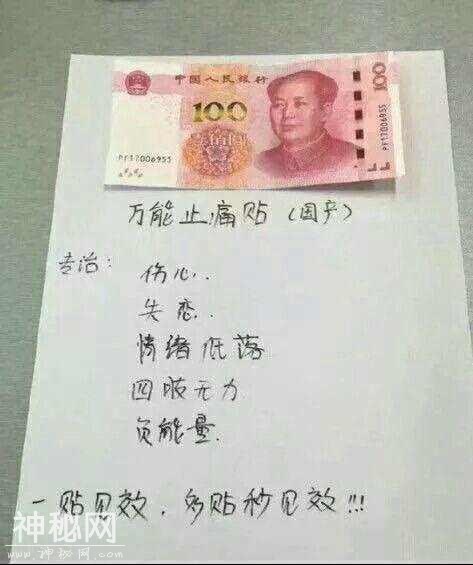 中国人民银行
100
100
PF17006955
PF17006955
万能止痛贴（国产）
专治：
伤心..
失恋..
情绪低落
四肢无力
负能量.
一贴见效，多贴秒见效!!!
神秘网
www.神秘网.com